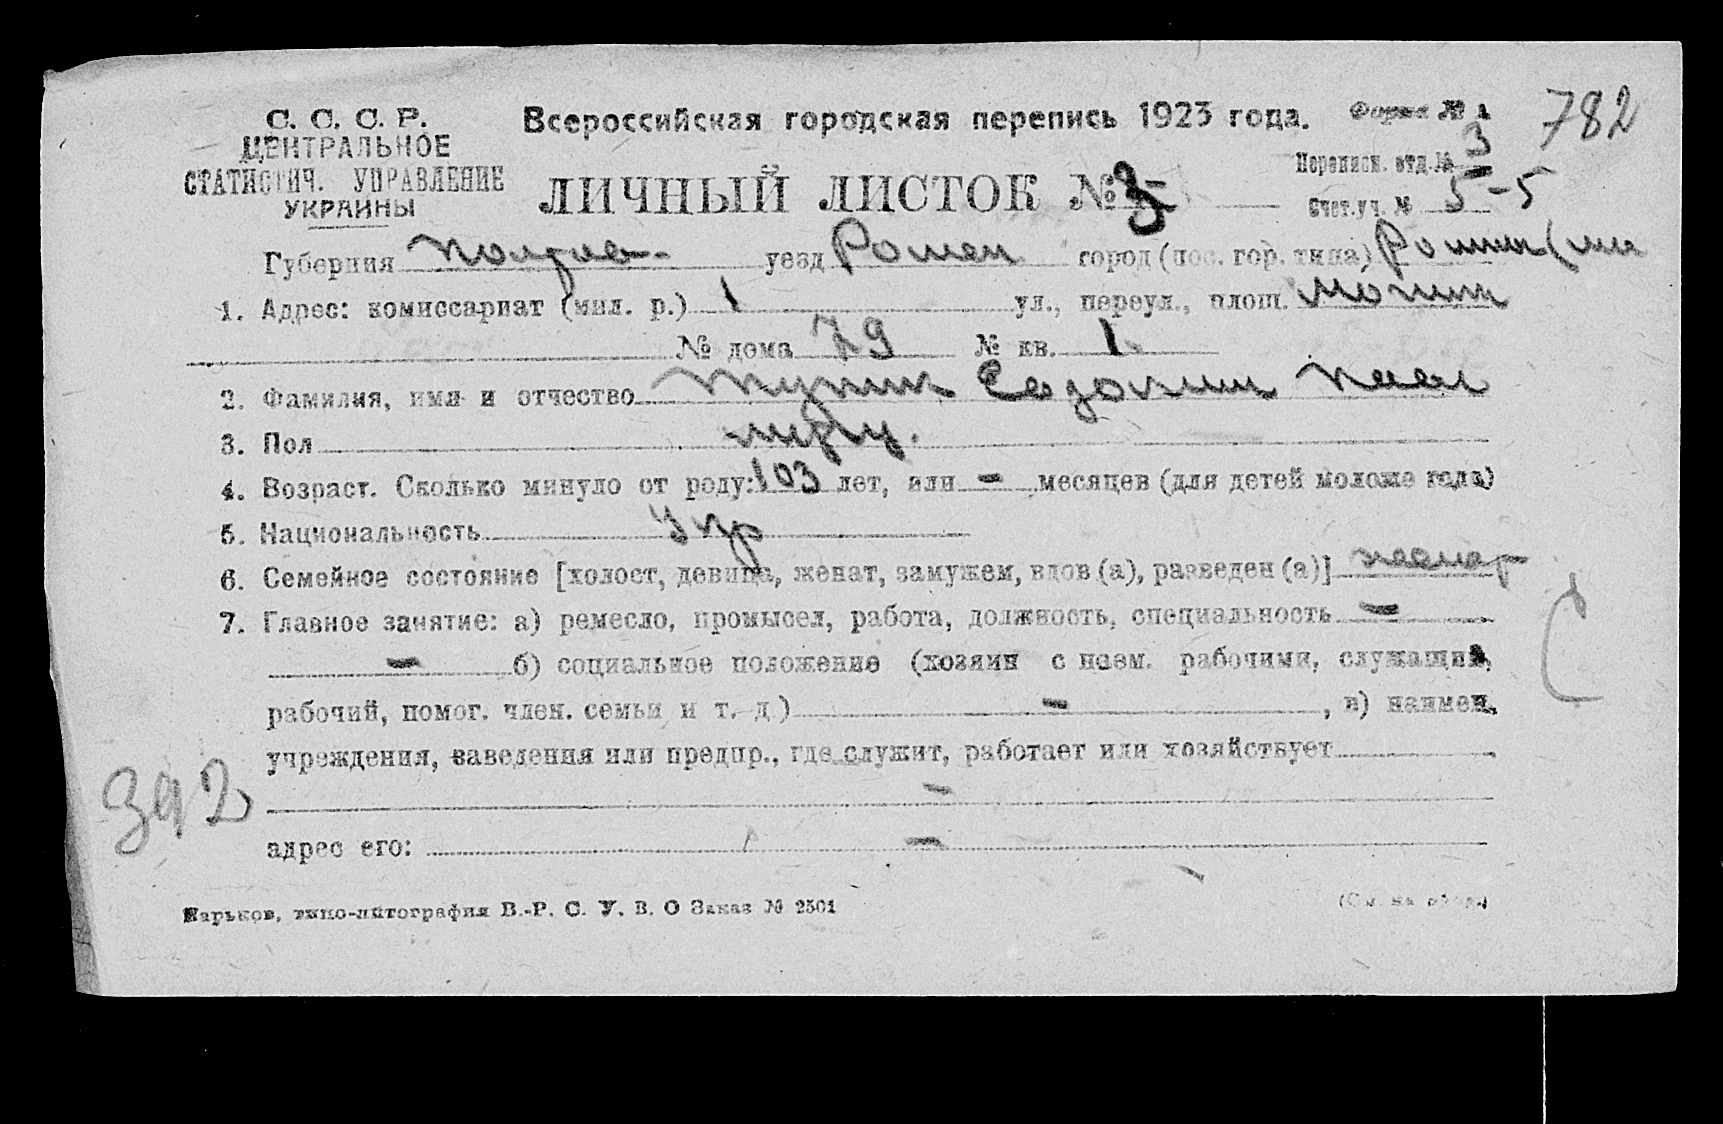 С. С. С. Р.
ЦЕНТРАЛЬНОЕ
СТАТИСТИЧ. УПРАВЛЕНИЕ
УКРАИНЫ
Всероссийская городская перепись 1923 года.
Форма № 1
782
Переписн. отд. № 3
ЛИЧНЫЙ ЛИСТОК № 3
Счет. уч. № 5-5
Губерния Полтав- уезд Ромен город (пос. гор. типа) Ромны
1. Адрес: комиссариат (мил. р.) 1 ул., переул., площ.
№ дома 79 № кв. 1
2. Фамилия, имя и отчество
3. Пол
4. Возраст. Сколько минуло от роду: 103 лет, или - месяцев (для детей моложе года)
5. Национальность Укр
6. Семейное состояние [холост, девица, женат, замужем, вдов (а), разведен (а)]
7. Главное занятие: а) ремесло, промысел, работа, должность, специальность -
- б) социальное положение (хозяин с наем. рабочими, служащий,
рабочий, помог. член. семьи и т. д.) - , в) наимен.
учреждения, заведения или предпр., где служит, работает или хозяйствует
-
392
адрес его: -
Харьков, типо-литография В.-Р. С. У. В. О Заказ № 2501
(См. на обор.)